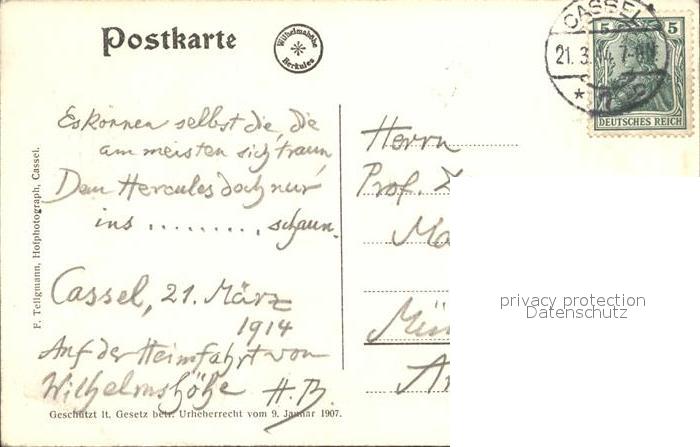 Postkarte
Wilhelmshöhe
Herkules
CASSEL
21. 3. 14. 7-8N
* 7
5 5
DEUTSCHES REICH
Es können selbst die, die
am meisten sich traun,
Dem Hercules doch nur
ins ........., schaun.
Cassel, 21. März
1914
Auf der Heimfahrt von
Wilhelmshöhe H. B.
Herrn
Prof.
Mün
F. Tellgmann, Hofphotograph, Cassel.
Geschützt lt. Gesetz betr. Urheberrecht vom 9. Januar 1907.
privacy protection
Datenschutz